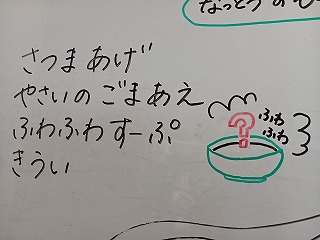 さつまあげ
やさいのごまあえ
ふわふわすーぷ
きうい
?
ふわ
ふわ